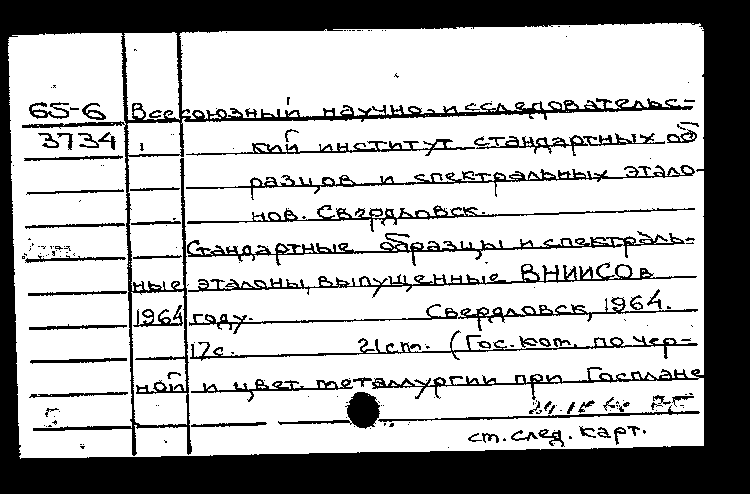 65-6 Всесоюзный научно-исследовательс-
3734 кий институт стандартных об
разцов и спектральных этало-
нов. Свердловск.
Стандартные образцы и спектраль-
ные эталоны, выпущенные ВНИИСО в
1964 году. Свердловск, 1964.
17с. 21см. (Гос. ком. по чер-
ной и цвет. металлургии при Госплане
ст. след. карт.